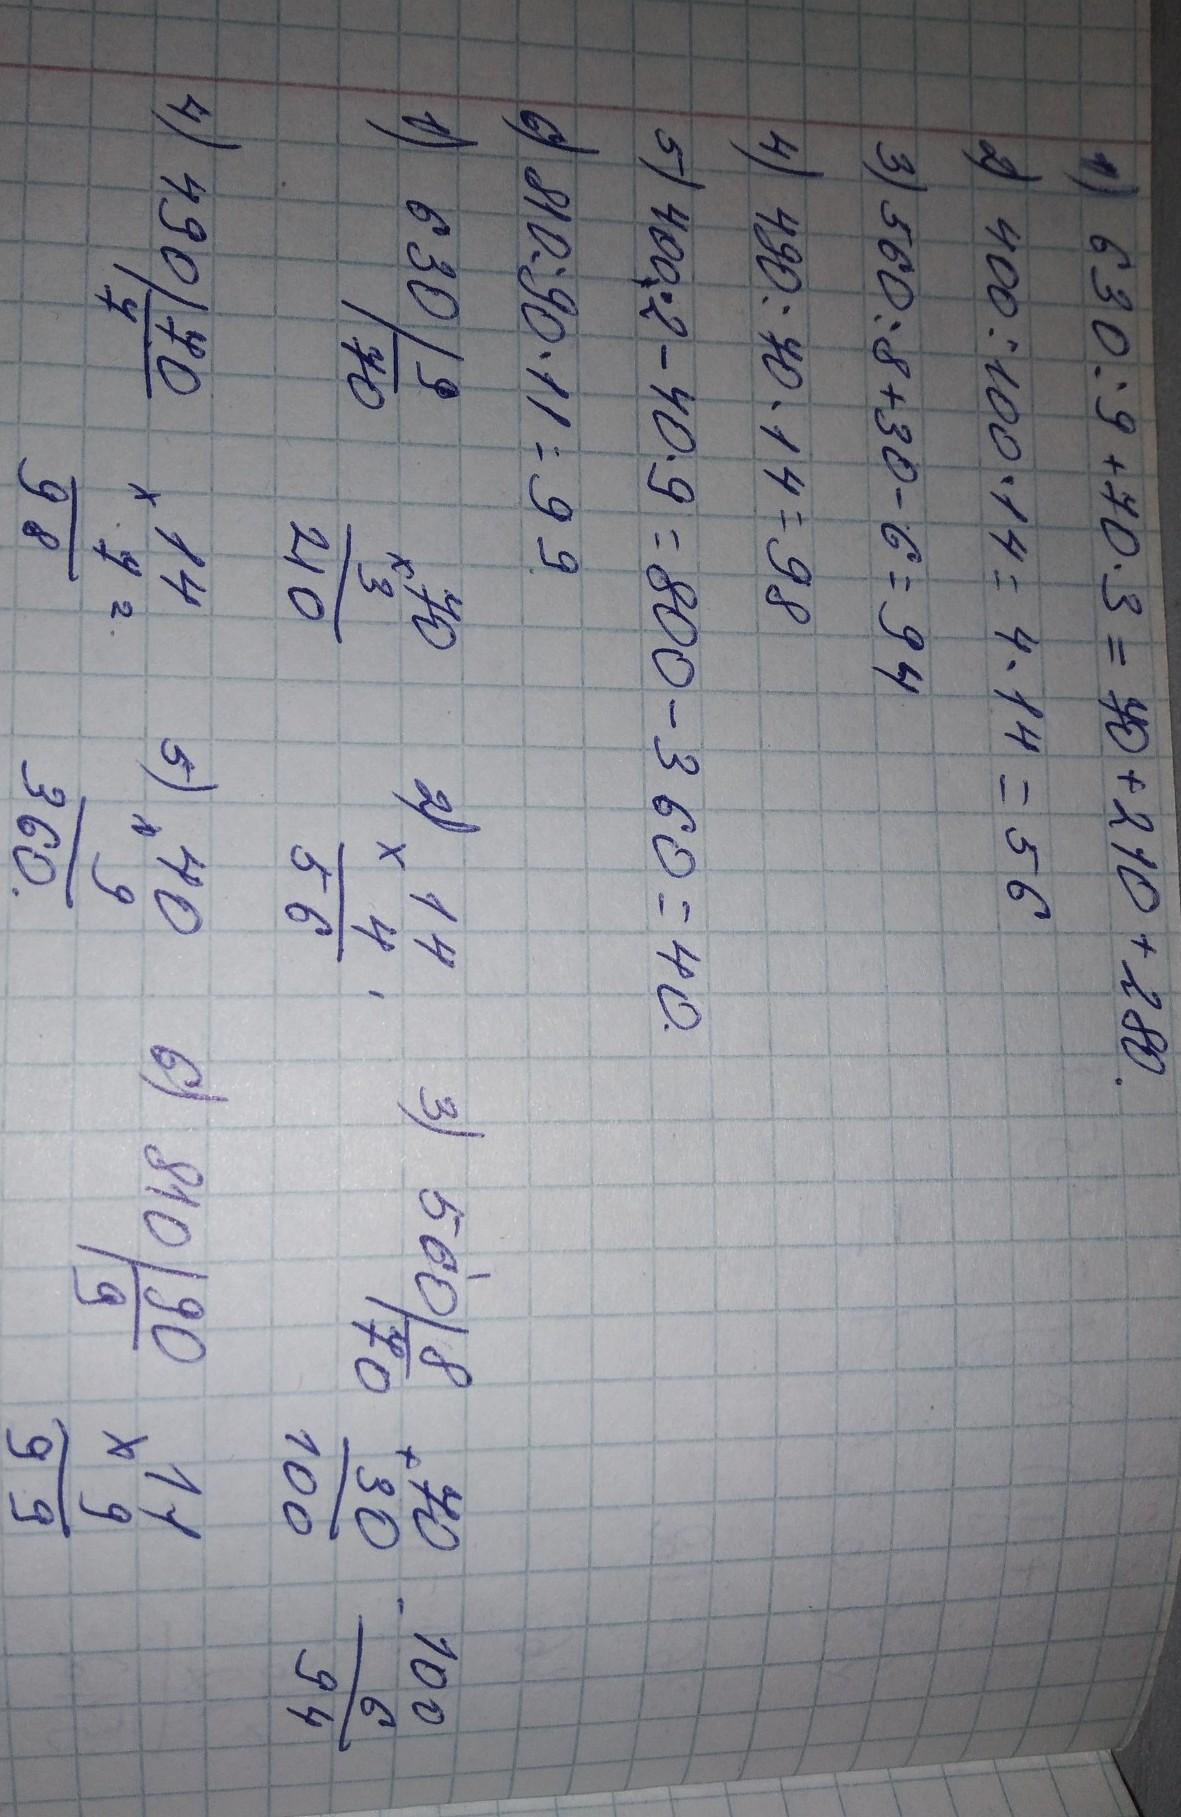 1) 630:9+70·3=70+210+280.
2) 400:100·14=4·14=56
3) 560:8+30-6=94
4) 490:70·14=98
5) 400·2-40·9=800-360=40.
6) 810:90·11=99.
1) 630|9 70 2) 14 3) 560|8 +70 -100
70 ×3 ×4 70 30 6
210 56 100 94
4) 490|70 ×14 5) ×40 6) 810|90 ×11
7 7 2 9 9 9
98 360. 99